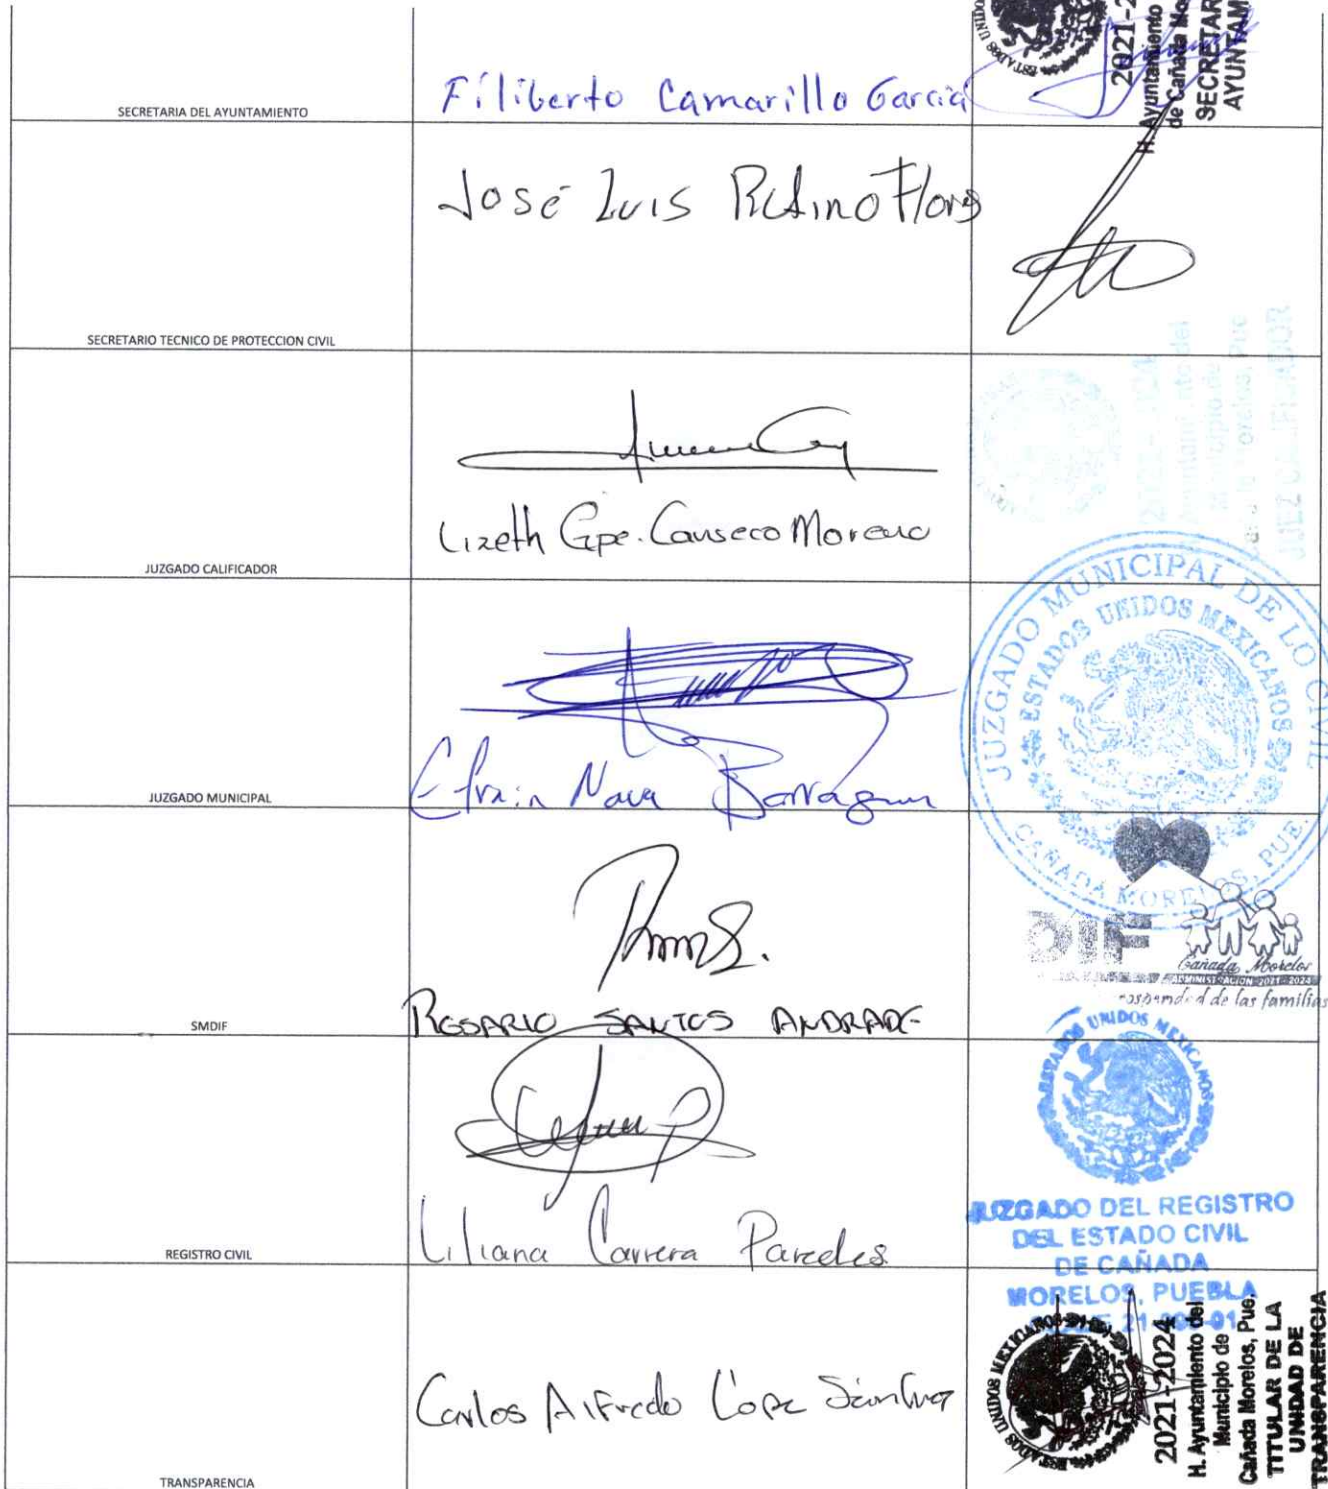 SECRETARIA DEL AYUNTAMIENTO
Filiberto Camarillo Garcia
2021-2
H. Ayuntamiento
de Cañada Mo
SECRETAR
AYUNTAM
ESTADOS UNIDO
SECRETARIO TECNICO DE PROTECCION CIVIL
José Luis Flores
JUZGADO CALIFICADOR
Lizeth Gpe. Canseco Moreno
JUZGADO MUNICIPAL
Efrain Nava Barragan
JUZGADO MUNICIPAL DE LO CIVIL
ESTADOS UNIDOS MEXICANOS
CAÑADA MORELOS, PUE.
SMDIF
ROSARIO SANTOS ANDRADE
DIF
Cañada Morelos
ADMINISTRACION 2021-2024
de las familias
REGISTRO CIVIL
Liliana Carrera Paredes
ESTADOS UNIDOS MEXICANOS
JUZGADO DEL REGISTRO
DEL ESTADO CIVIL
DE CAÑADA
MORELOS, PUEBLA
TRANSPARENCIA
Carlos Alfredo Sánchez
ESTADOS UNIDOS MEXICANOS
2021-2024
H. Ayuntamiento del
Municipio de
Cañada Morelos, Pue.
TITULAR DE LA
UNIDAD DE
TRANSPARENCIA